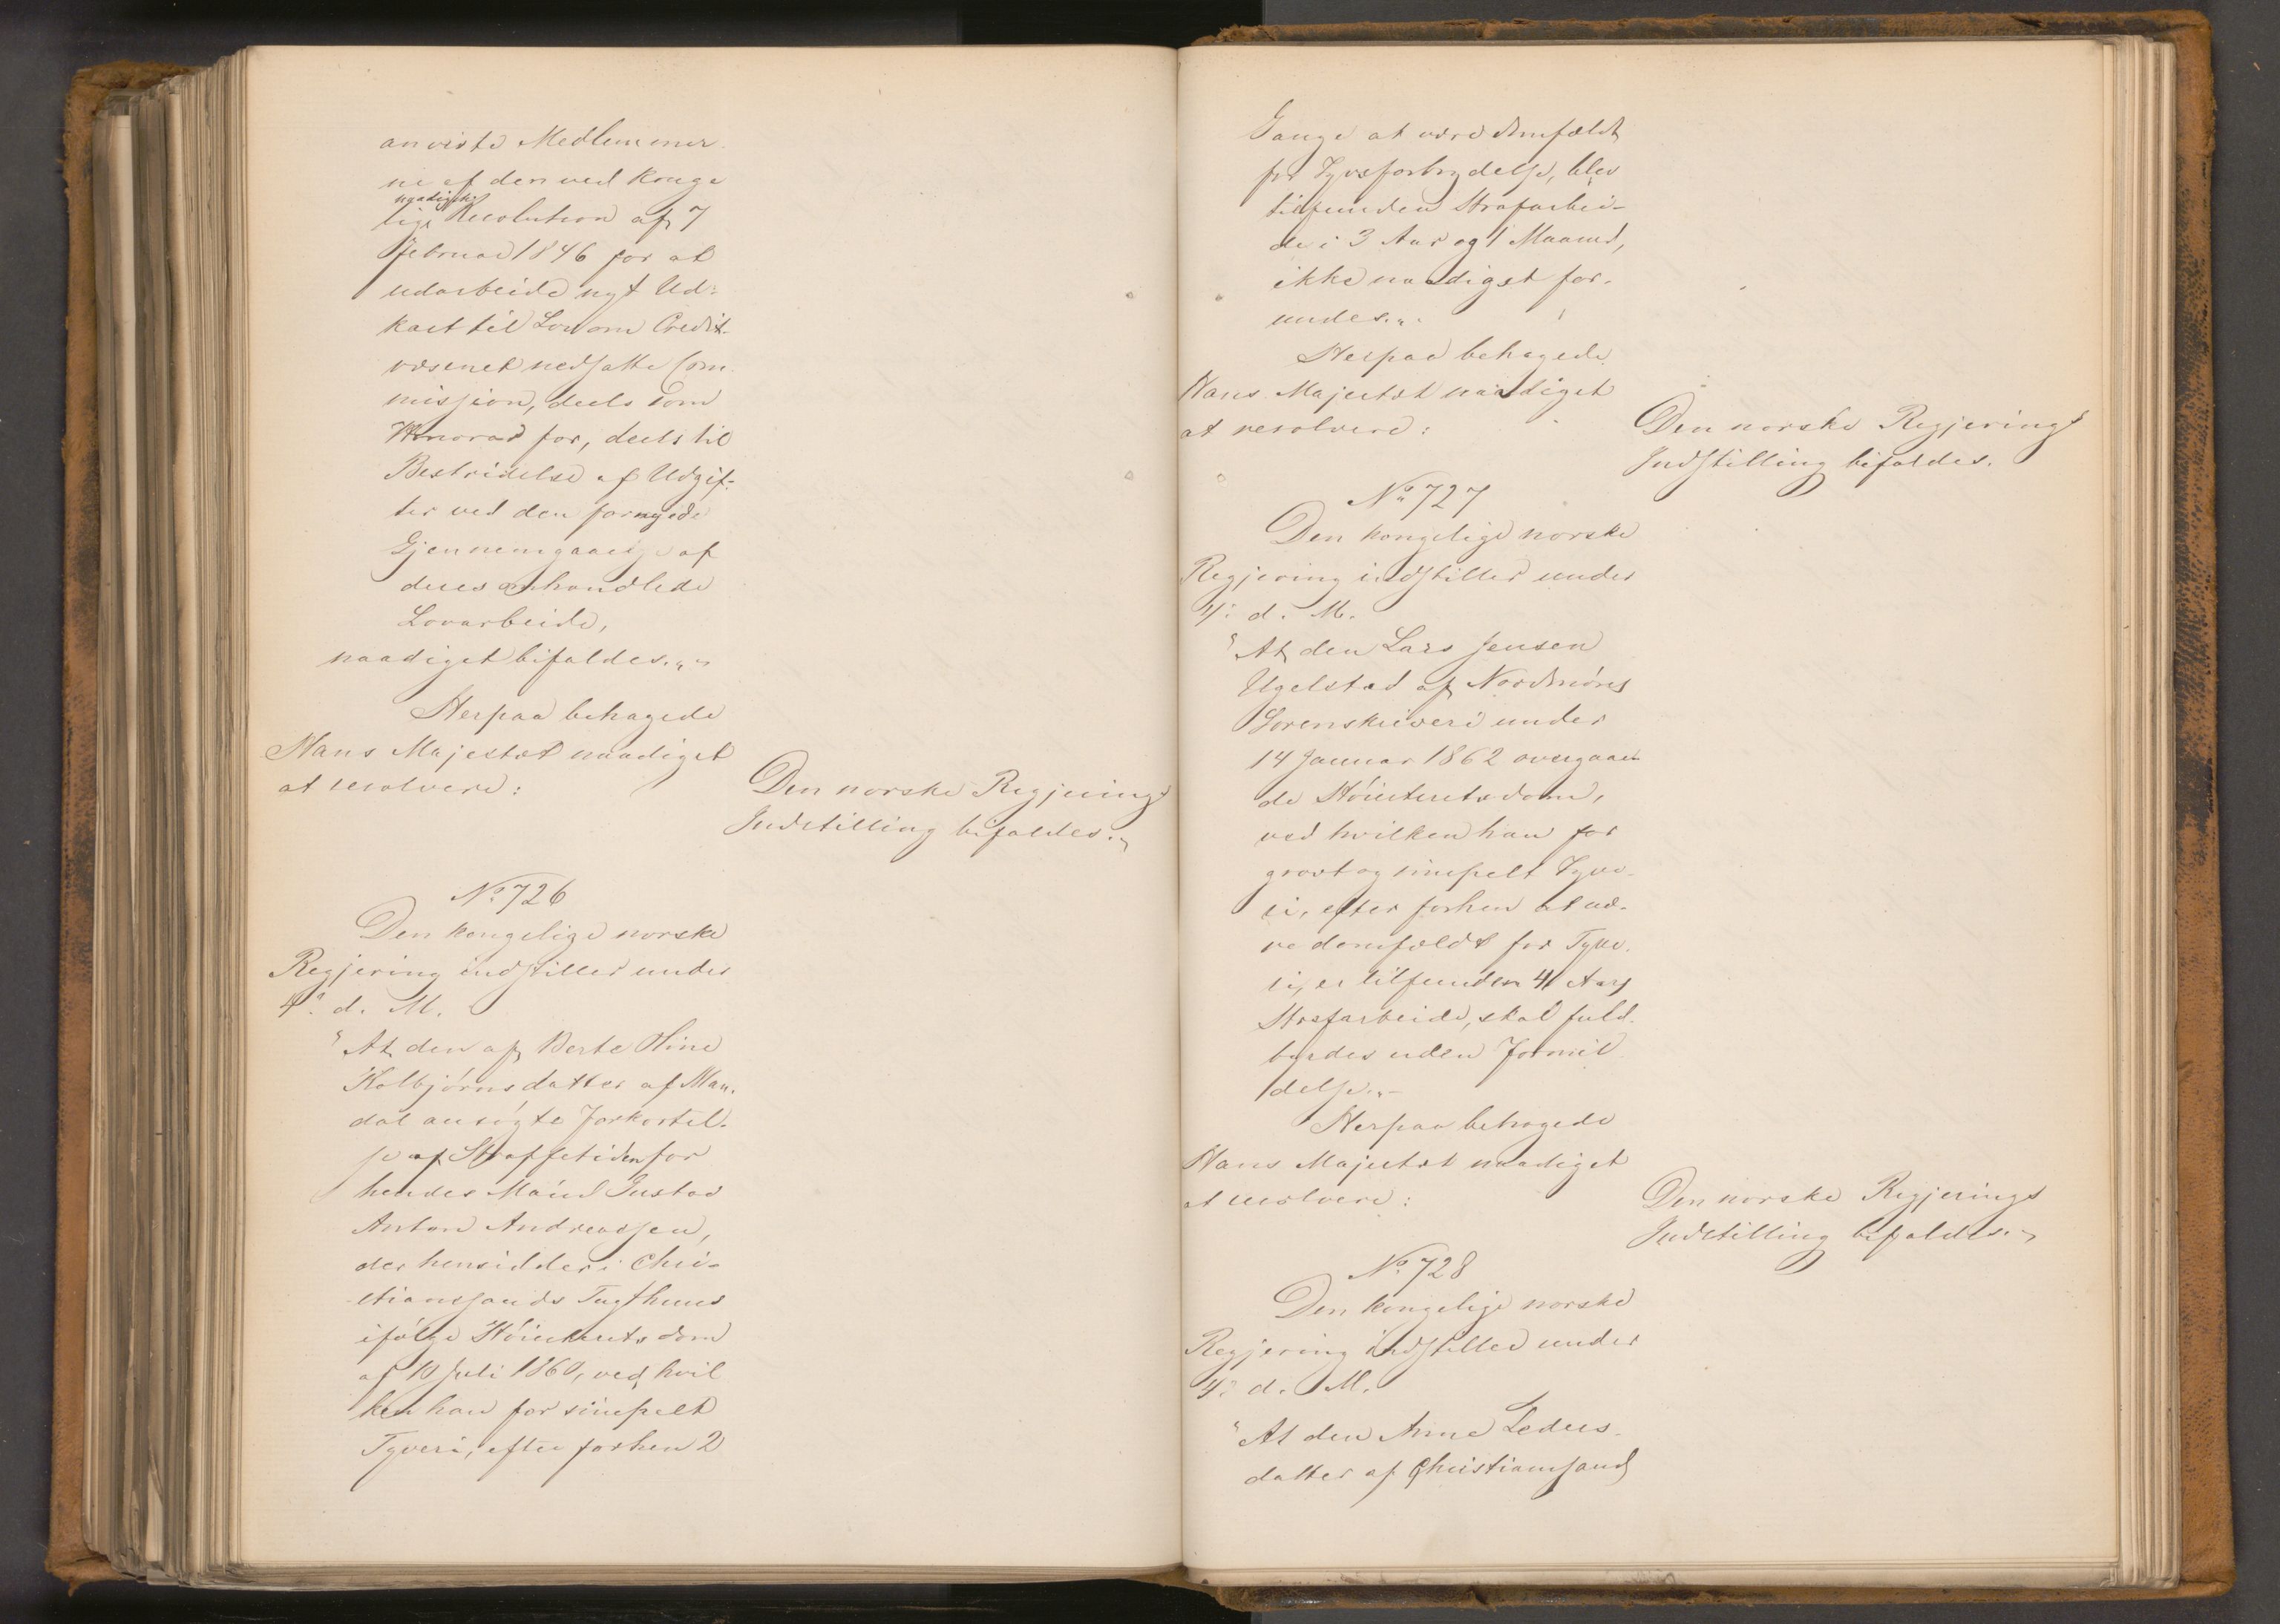 anviste Medlemmer-
ne af den ved Konge
naadigste
lige Resolution af 7
Februar 1846 for at
udarbeide nyt Ud-
kast til Lov om Credit-
væsenet nedsatte Com
mission, deels som
Honorar for, deels til
Bestridelse af Udgif-
ter ved den fornyede
Gjennemgaaelse af
deres omhandlede
Lovarbeide,
naadigst bifaldes.„„
Herpaa behagede
Hans Majestæt naadigst
at resolvere:
Den norske Regjerings
Indstilling bifaldes.„
No 726
Den kongelige norske
Regjering indstiller under
4de d. M.
"At den af Berte Oline
Kolbjørnsdatter af Man-
dal ansøgte Forkortel-
se af Straffetiden for
hendes Mand Gustav
Anton Andreassen,
der hensidder i Chri-
stianssands Tugthuus
ifølge Høiesteretsdom
af 10 Juli 1860, ved hvil
ken han for simpelt
Tyveri, efter forhen 2
Gange at være domfældt
for Tyvsforbrydelse, blev
tilfunden Strafarbei-
de i 3 Aar og 1 Maaned,
ikke naadigst for-
undes.„
Herpaa behagede
Hans Majestæt naadigst
at resolvere:
Den norske Regjerings
Indstilling bifaldes.
No 727
Den kongelige norske
Regjering indstiller under
4de d. M.
"At den Lars Jensen
Ugelstad af Nordmøres
Sorenskriveri under
14 Januar 1862 overgaae-
de Høiesteretsdom,
ved hvilken han for
grovt og simpelt Tyve-
ri, efter forhen at væ-
re domfældt for Tyve-
ri, er tilfunden 4 Aars
Strafarbeide, skal fuld-
byrdes uden Formil
delse.„
Herpaa behagede
Hans Majestæt naadigst
at resolvere:
Den norske Regjerings
Indstilling bifaldes.„
No 728
Den kongelige norske
Regjering indstiller under
4de d. M.
"At den Anne Leders-
datter af Christianssand